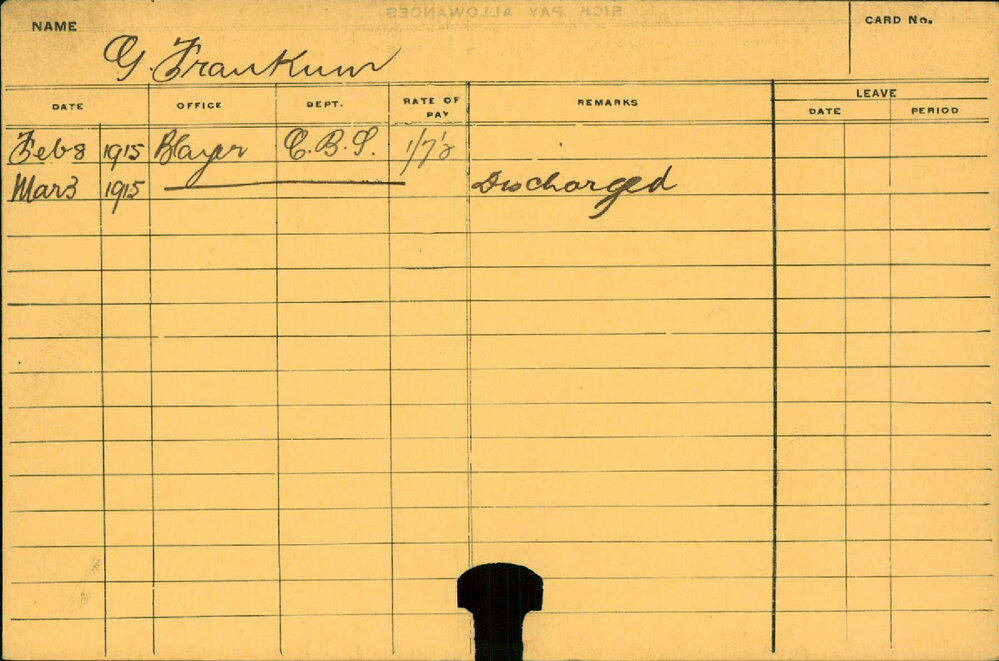 SICK PAY ALLOWANCES
NAME G. Frankum CARD No.
DATE OFFICE DEPT. RATE OF PAY REMARKS LEAVE
DATE PERIOD
Feb 8 1915 Blayer C.B.S.
Mar 3 1915 Discharged